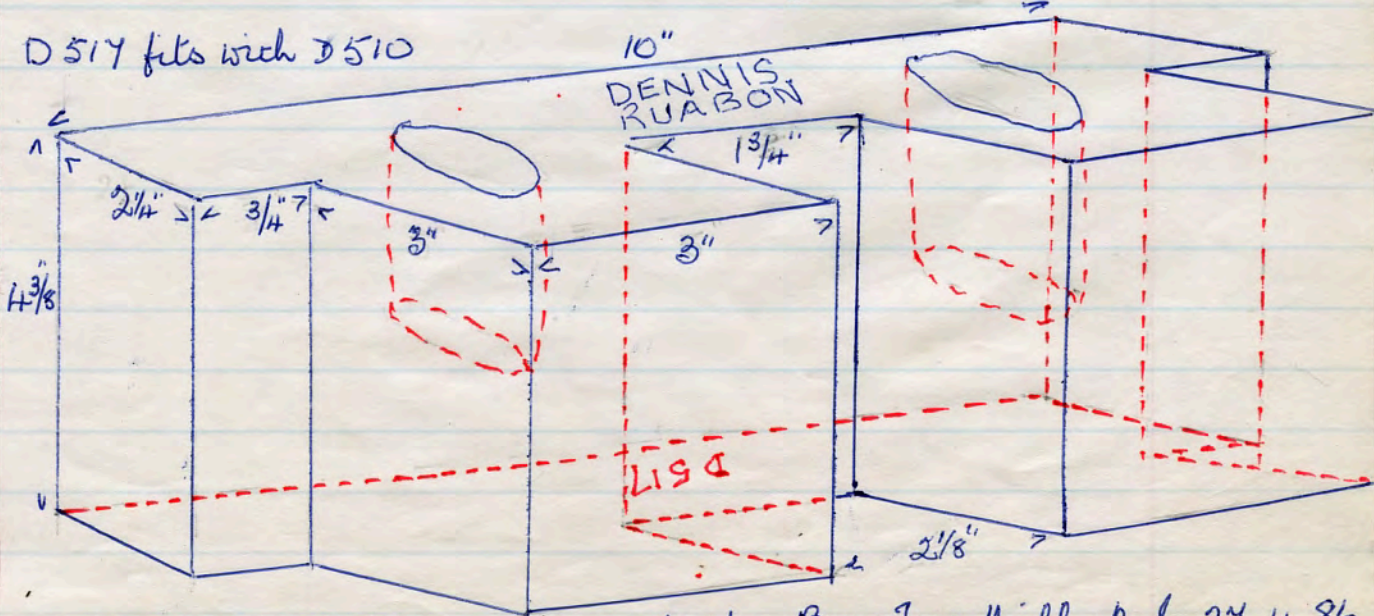 D 517 fits with D 510
10"
DENNIS
RUABON
1 3/4"
2 1/4"
3/4"
3"
3"
4 3/8"
D 517
2 1/8"